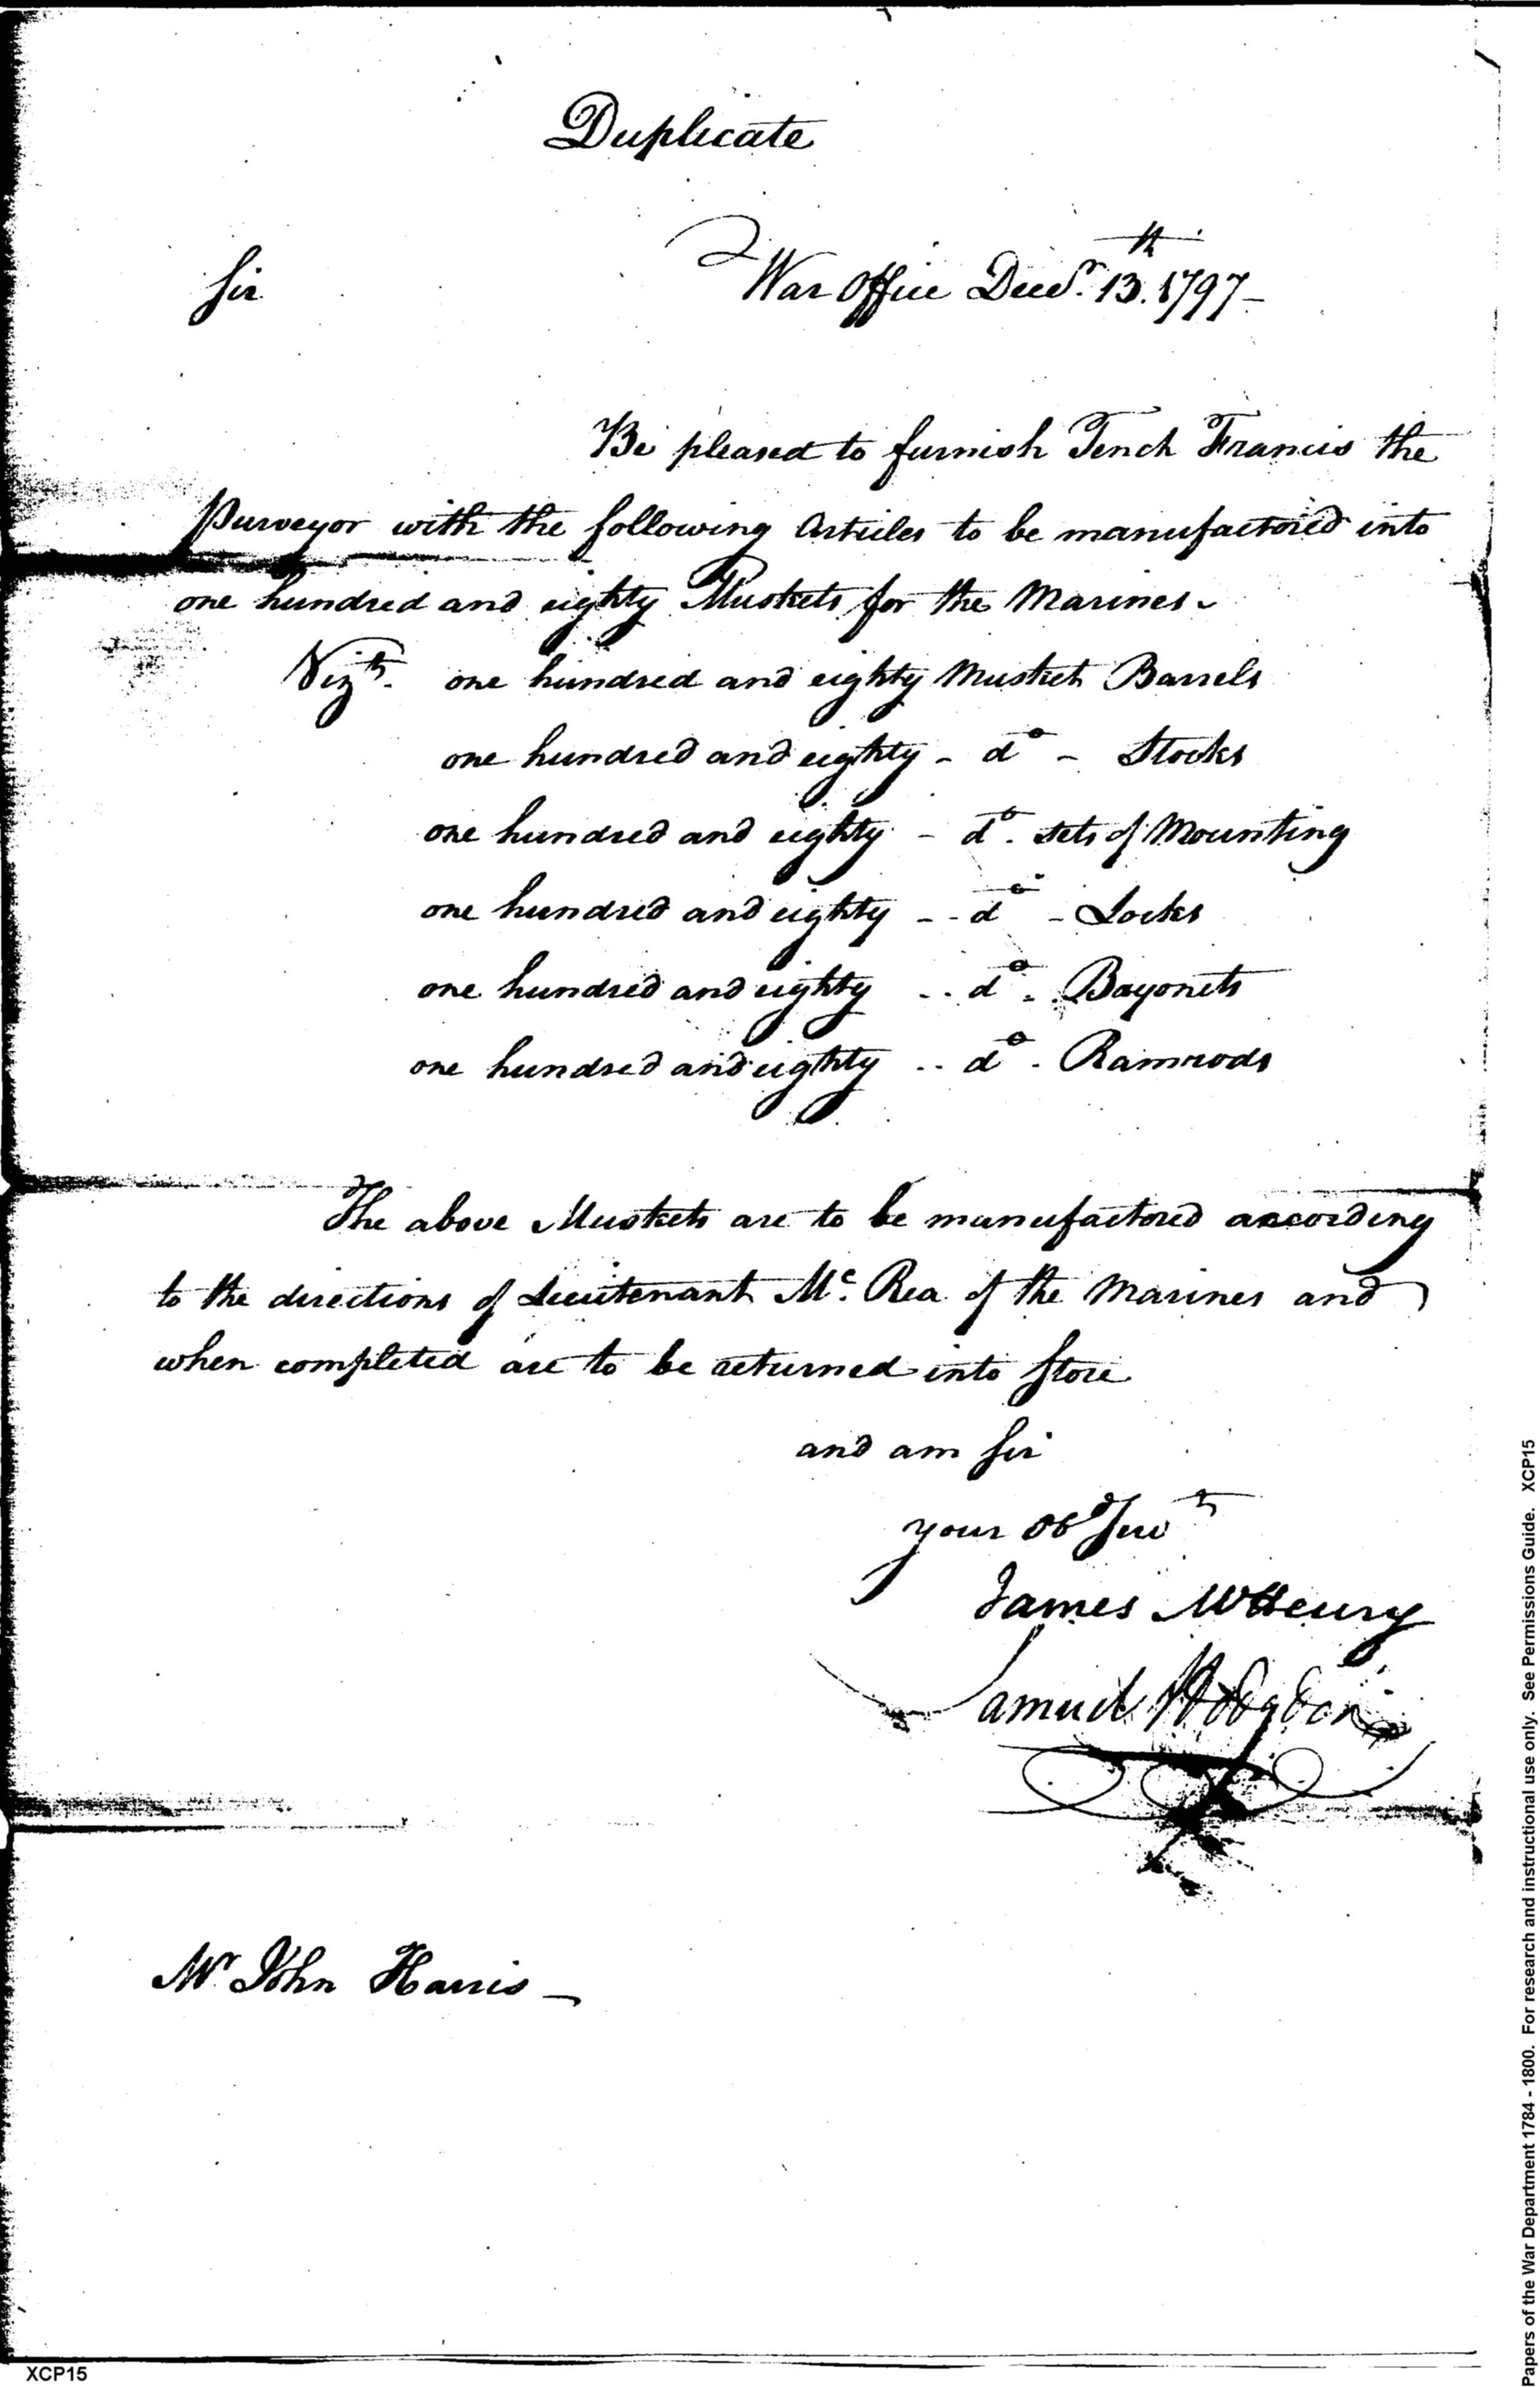 Duplicate
Sir
War Office Decr. 13th. 1797
Be pleased to furnish Tench Francis the
Purveyor with the following Articles to be manufactored into
one hundred and eighty Muskets for the Marines
Vizt. one hundred and eighty Musket Barrels
one hundred and eighty - do - Stocks
one hundred and eighty - do. sets of Mounting
one hundred and eighty - - do - Locks
one hundred and eighty - - do - Bayonets
one hundred and eighty - - do - Ramrods
The above Muskets are to be manufactored according
to the directions of Lieutenant Mc. Rea of the Marines and
when completed are to be returned into Store
and am Sir
your Obd Servt
James McHenry
Samuel Hodgdon
Mr John Harris -
XCP15
Papers of the War Department 1784 - 1800. For research and instructional use only. See Permissions Guide. XCP15